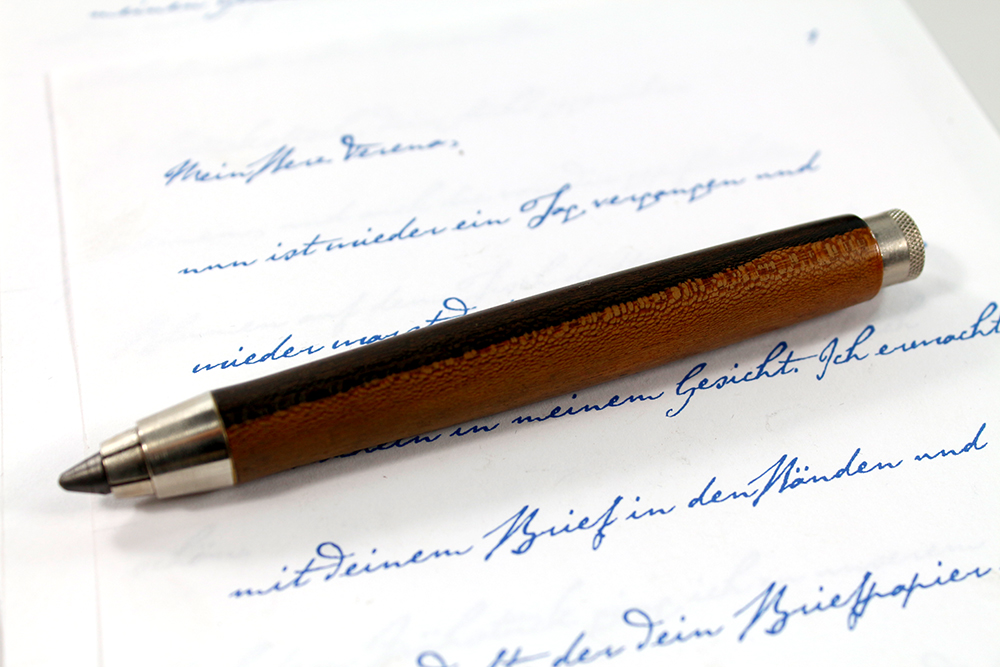 meinen
Mein Herz Verena,
nun ist wieder ein Tag vergangen und
wieder warst
in meinem Gesicht. Ich erwacht
mit deinem Brief in den Händen und
der dein Briefpapier